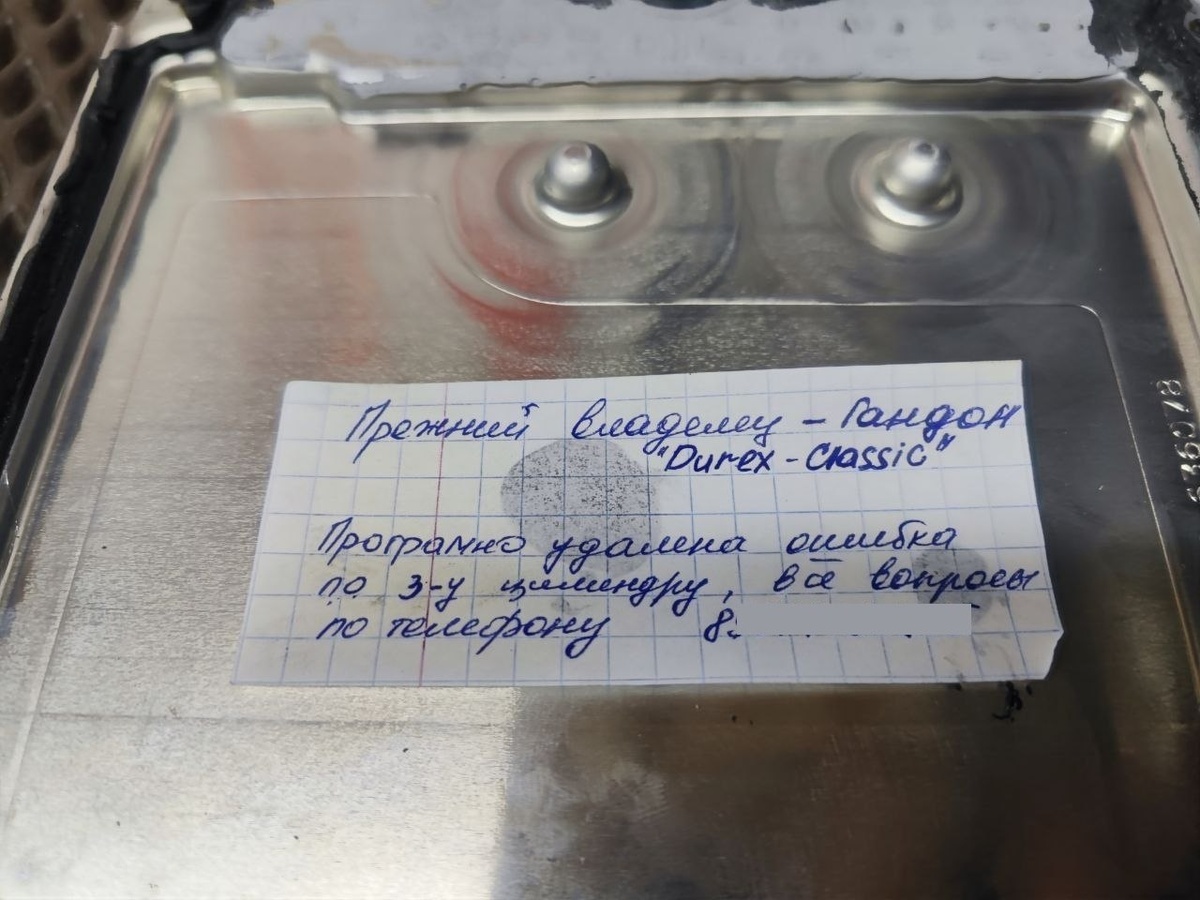 Прежний владелец - Гандон
"Durex - Classic"
Програмно удалена ошибка
по 3-у цилиндру, все вопросы
по телефону 8